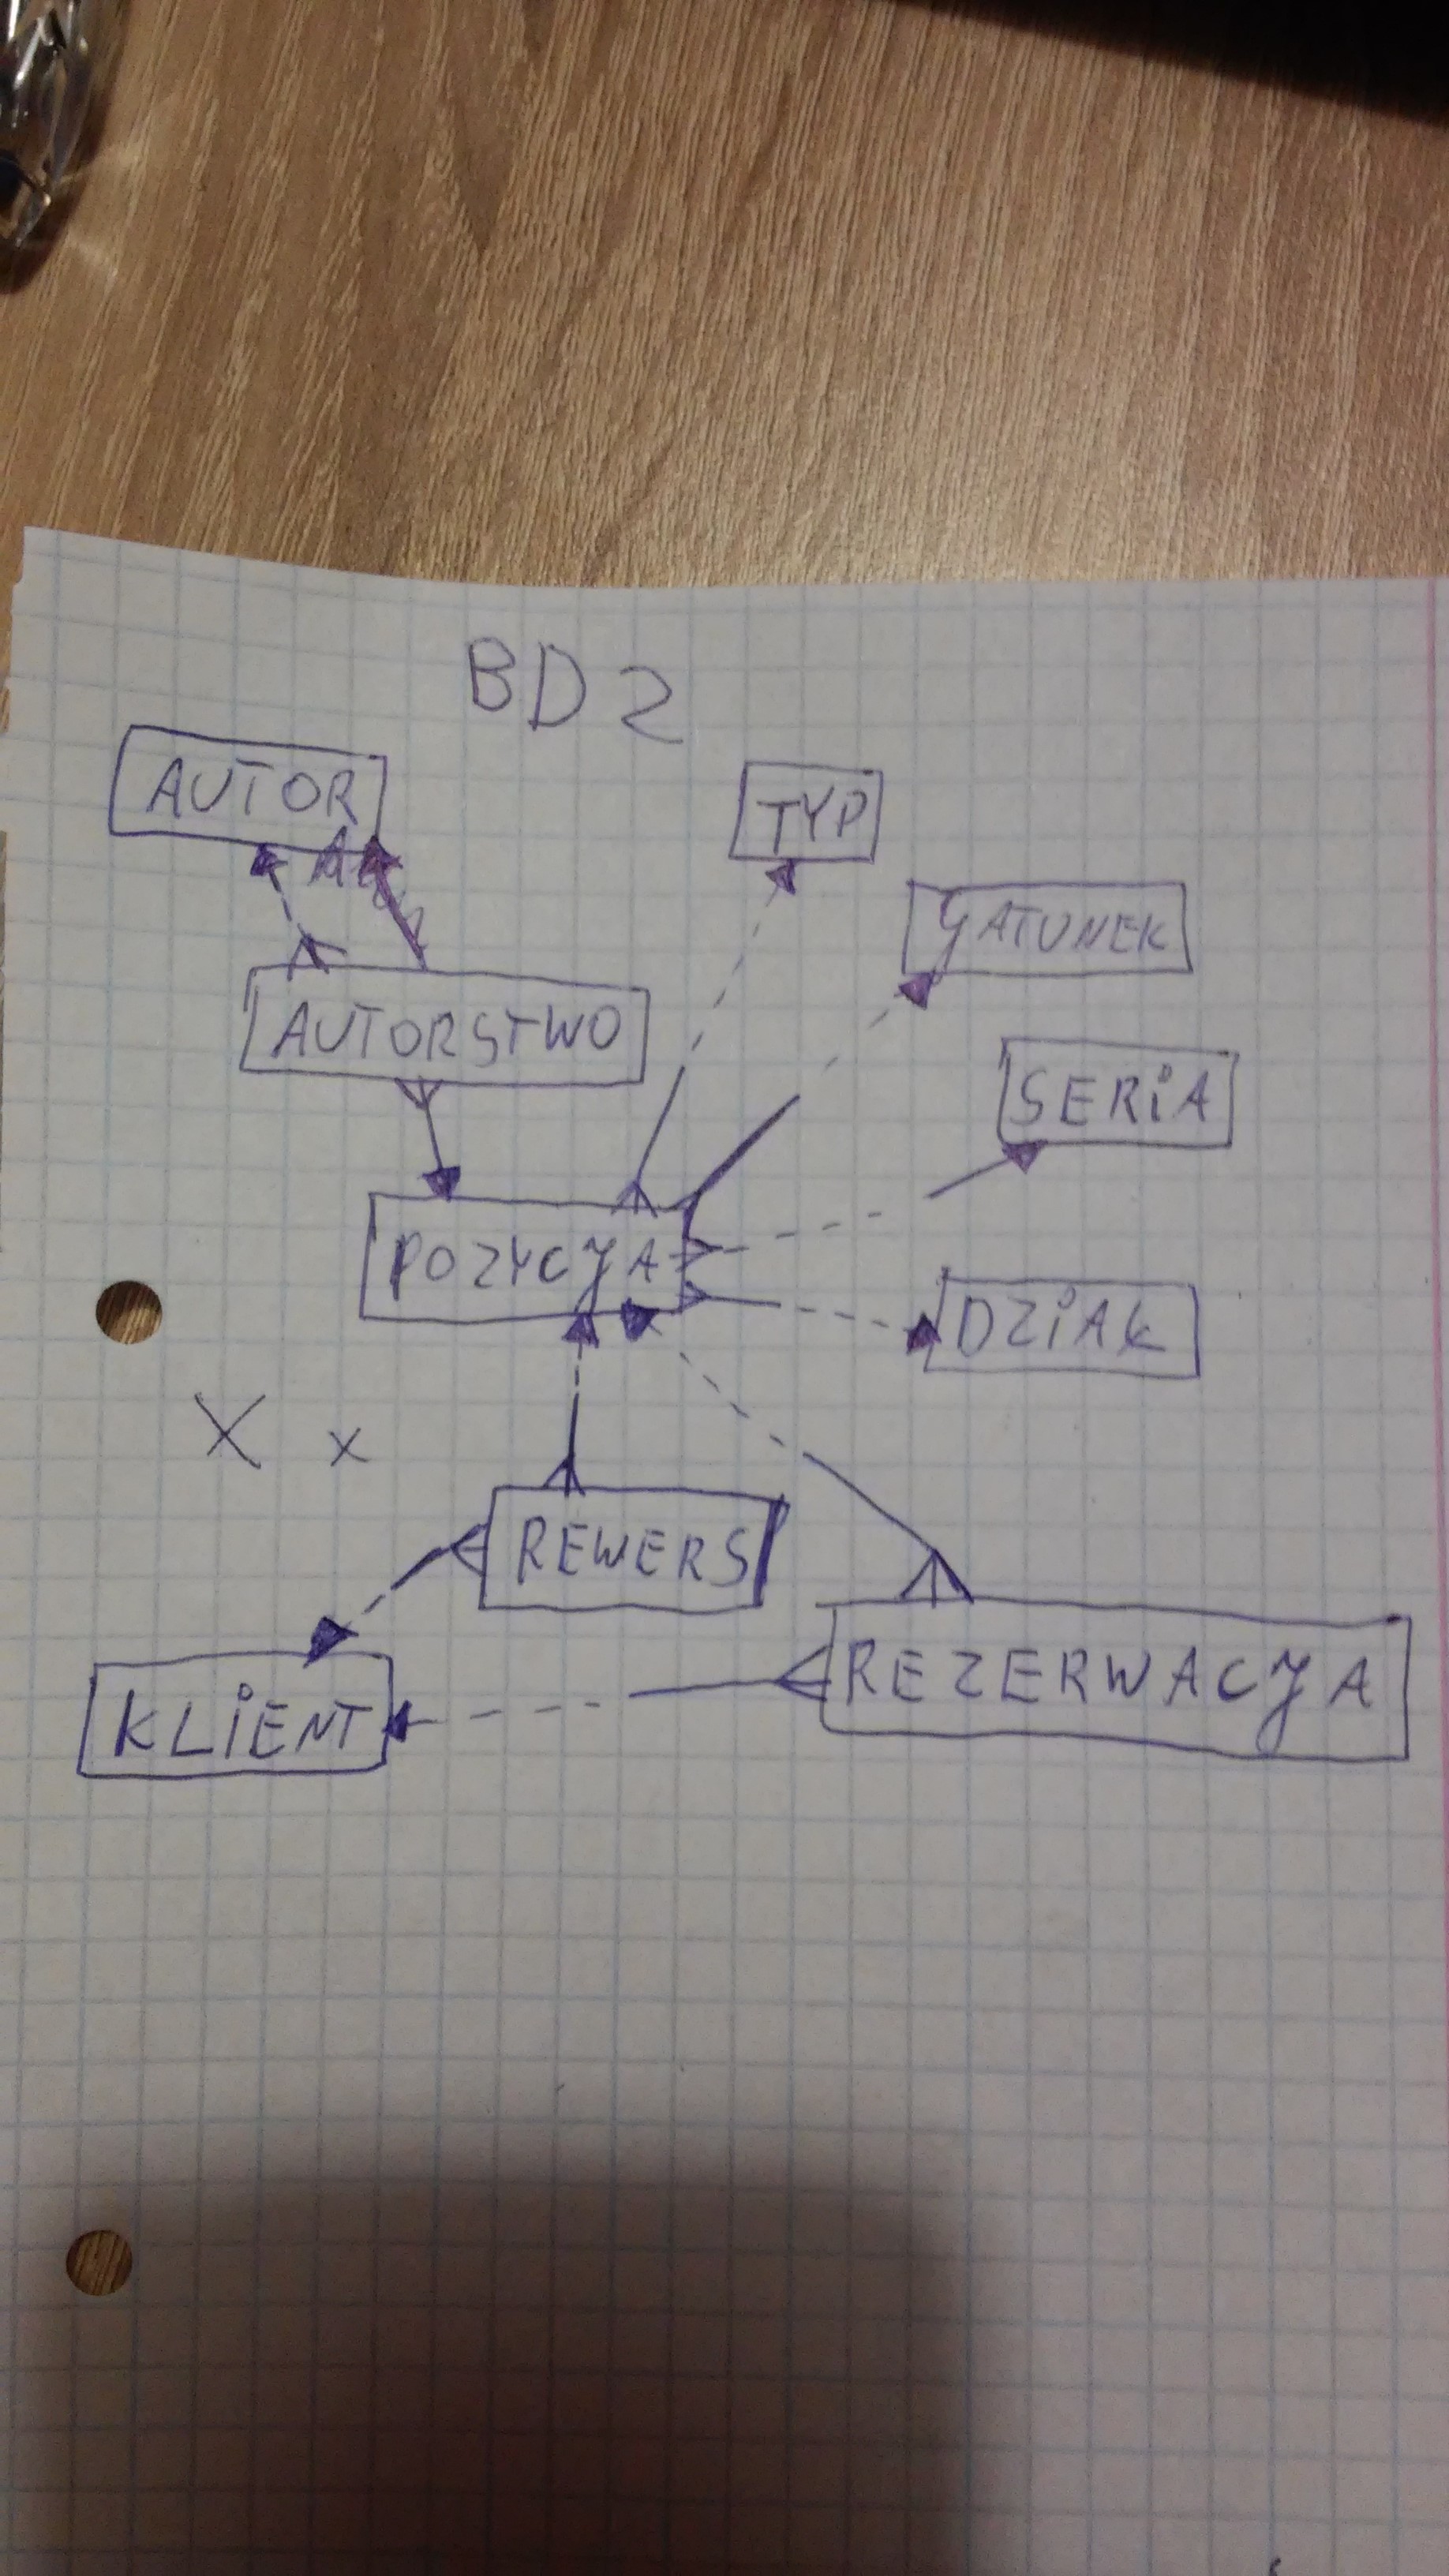 BD2
AUTOR
TYP
GATUNEK
AUTORSTWO
SERiA
POZYCJA
DZiAŁ
X x
REWERS
REZERWACJA
KLiENT